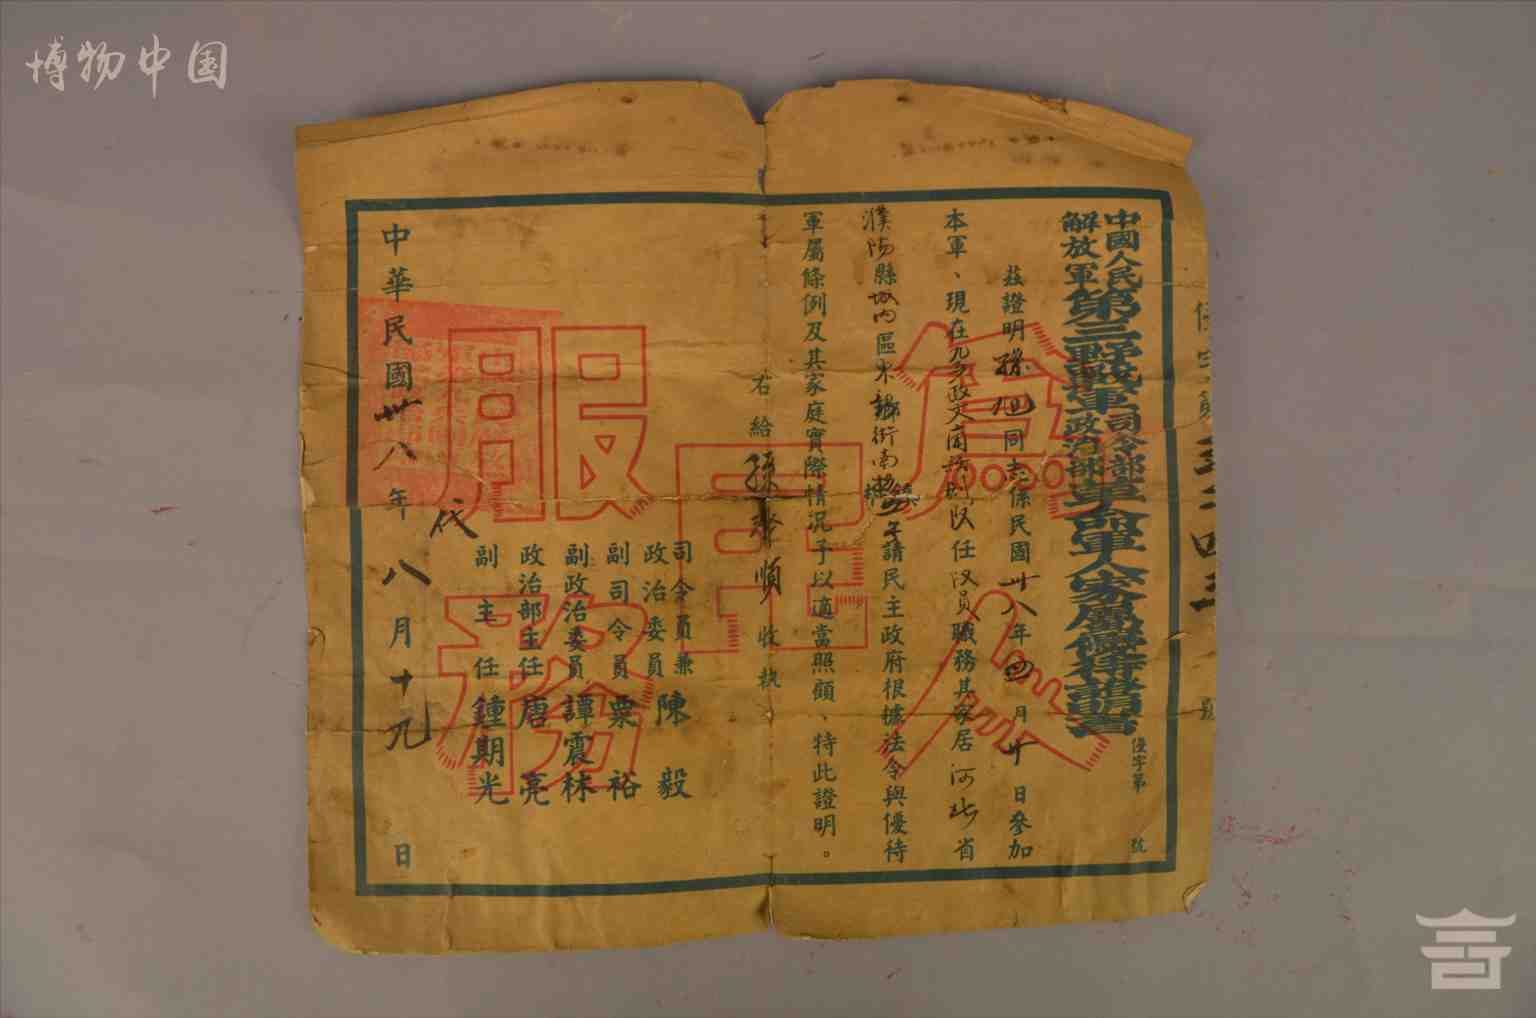 博物中国
中國人民解放軍第三野戰軍司令部政治部革命軍人家屬優待證明書
優字第 號
茲證明孫旭同志係民國卅八年四月廿日參加
本軍、現在九 政文 隊任 員職務其家居河北省
濮陽縣城內區 街南 鎮 請民主政府根據法令與優待
軍屬條例及其家庭實際情況予以適當照顧、特此證明。
右給孫 順收執
司令員兼政治委員陳毅
副司令員粟裕
副政治委員譚震林
政治部主任唐亮
副主任鍾期光
代
中華民國卅八年八月十九日
為人民服務